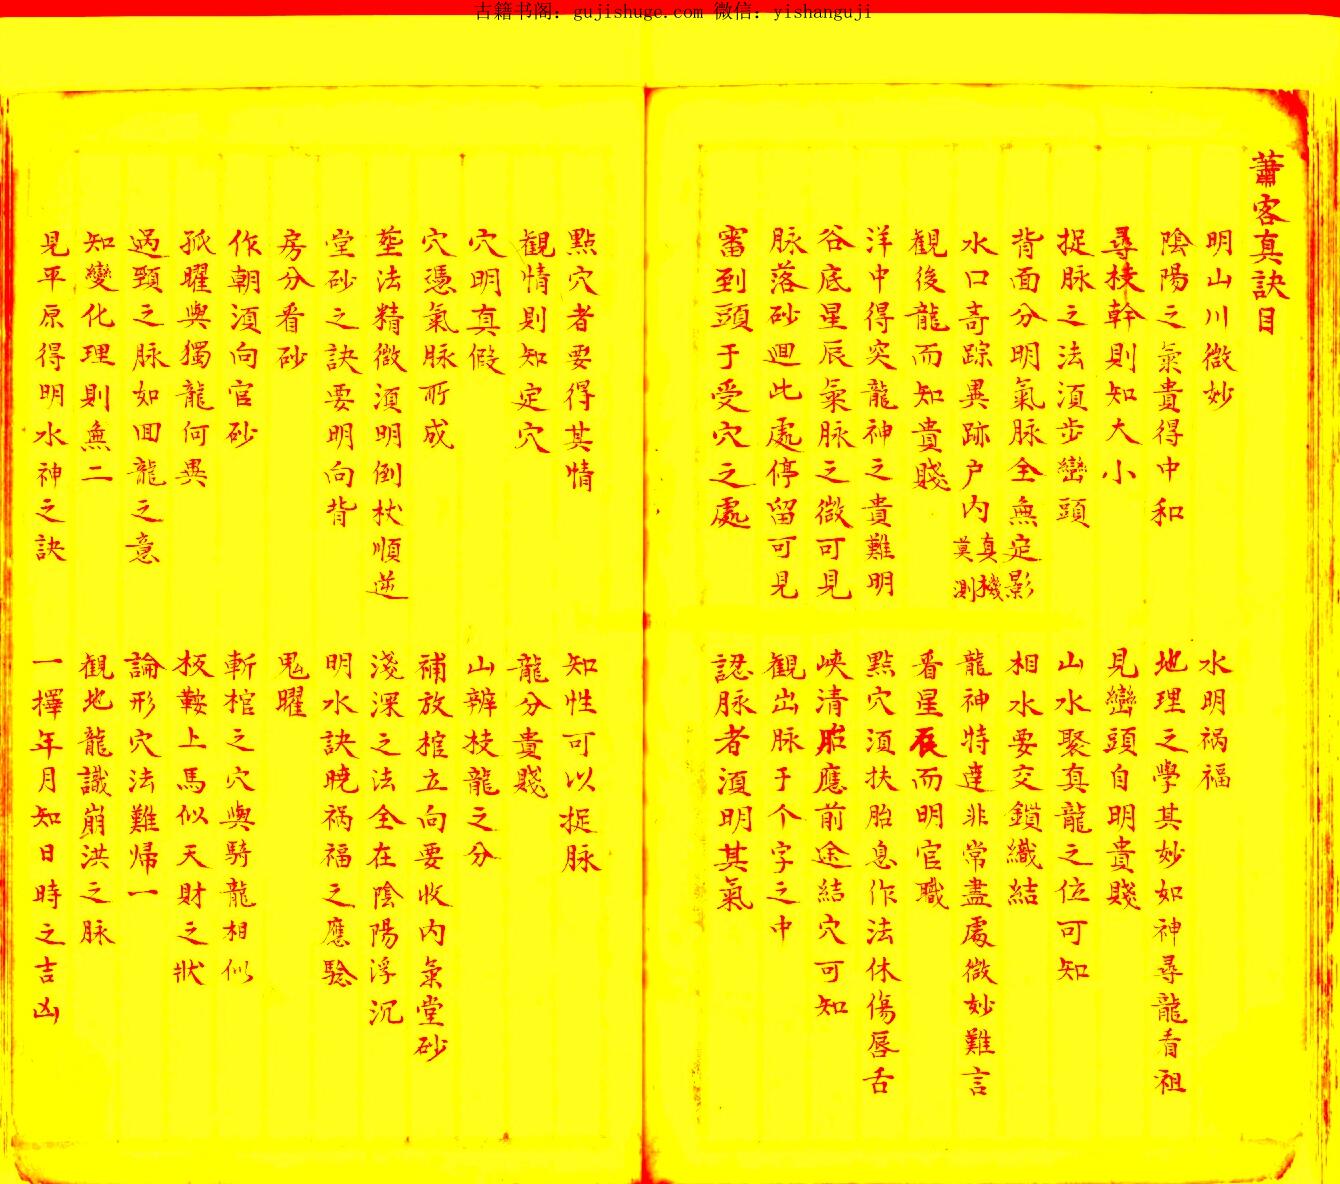 古籍书阁：gujishuge.com 微信：yishanguji
蕭客真訣目
明山川微妙
水明禍福
陰陽之氣貴得中和
地理之學其妙如神尋龍看祖
尋枝幹則知大小
見巒頭自明貴賤
捉脉之法須步巒頭
山水聚真龍之位可知
背面分明氣脉全無定影
相水要交鎖織結
水口奇踪異跡户内真機莫測
龍神特達非常盡處微妙難言
觀後龍而知貴賤
看星辰而明官職
洋中得突龍神之貴難明
點穴須扶胎息作法休傷唇舌
谷底星辰氣脉之微可見
峽清胎應前途結穴可知
脉落砂迴此處停留可見
觀出脉于个字之中
審到頭于受穴之處
認脉者須明其氣
點穴者要得其情
知性可以捉脉
觀情則知定穴
龍分貴賤
穴明真假
山辨枝龍之分
穴憑氣脉所成
補放棺立向要收内氣堂砂
塟法精微須明倒杖順逆
淺深之法全在陰陽浮沉
堂砂之訣要明向背
明水訣曉禍福之應驗
房分看砂
鬼曜
作朝須向官砂
斬棺之穴與騎龍相似
孤曜與獨龍何異
扳鞍上馬似天財之狀
過頸之脉如回龍之意
論形穴法難歸一
知變化理則無二
觀地龍識崩洪之脉
見平原得明水神之訣
一擇年月知日時之吉凶